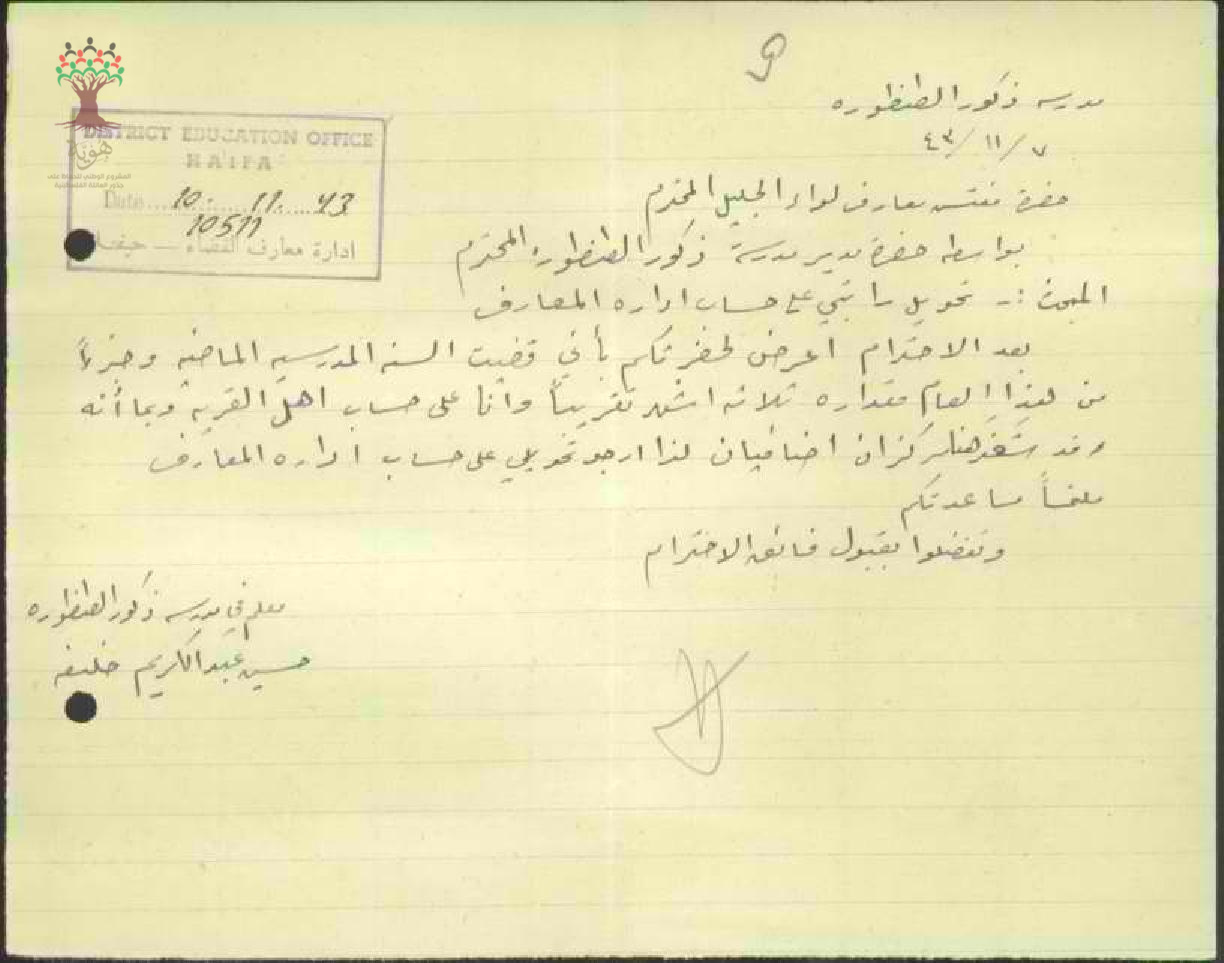 مدرسه ذكور الطنطوره
٧/ ١١/ ٤٣
حضرة مفتش معارف لواء الجليل المحترم
بواسطه حضرة مدير مدرسة ذكور الطنطوره المحترم
المبحث :- تحويل راتبي على حساب اداره المعارف
بعد الاحترام اعرض لحضرتكم بأني قضيت السنه المدرسيه الماضيه وجزءاً
من هذا العام مقداره ثلاثه اشهر تقريباً وانا على حساب اهل القريه وبما أنه
وقد شغر هنا مركزان اضافيان لذا ارجو تحويلي على حساب اداره المعارف
ملتمساً مساعدتكم
وتفضلوا بقبول فائق الاحترام
معلم في مدرسه ذكور الطنطوره
حسين عبد الكريم خليفه
DISTRICT EDUCATION OFFICE
HAIFA
Date 10. 11. 43
10511
ادارة معارف القضاء — حيفا
هوية
المشروع الوطني للحفاظ على
جذور العائلة الفلسطينية